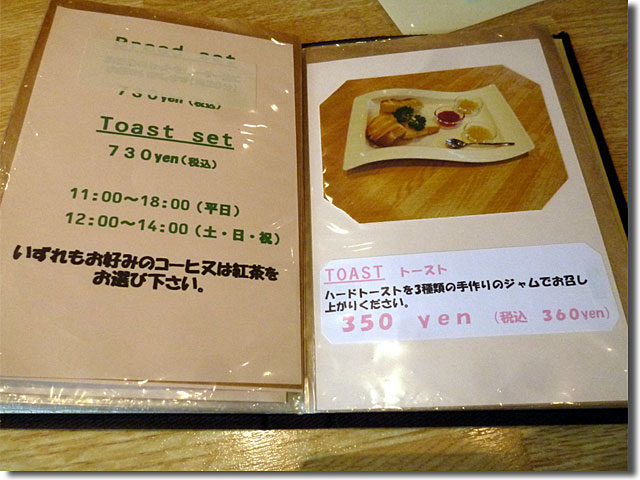 Bread set
730yen(税込)
Toast set
730yen(税込)
11:00〜18:00(平日)
12:00〜14:00(土・日・祝)
いずれもお好みのコーヒ又は紅茶を
お選び下さい。
TOAST トースト
ハードトーストを3種類の手作りのジャムでお召し
上がりください。
350 yen (税込 360yen)